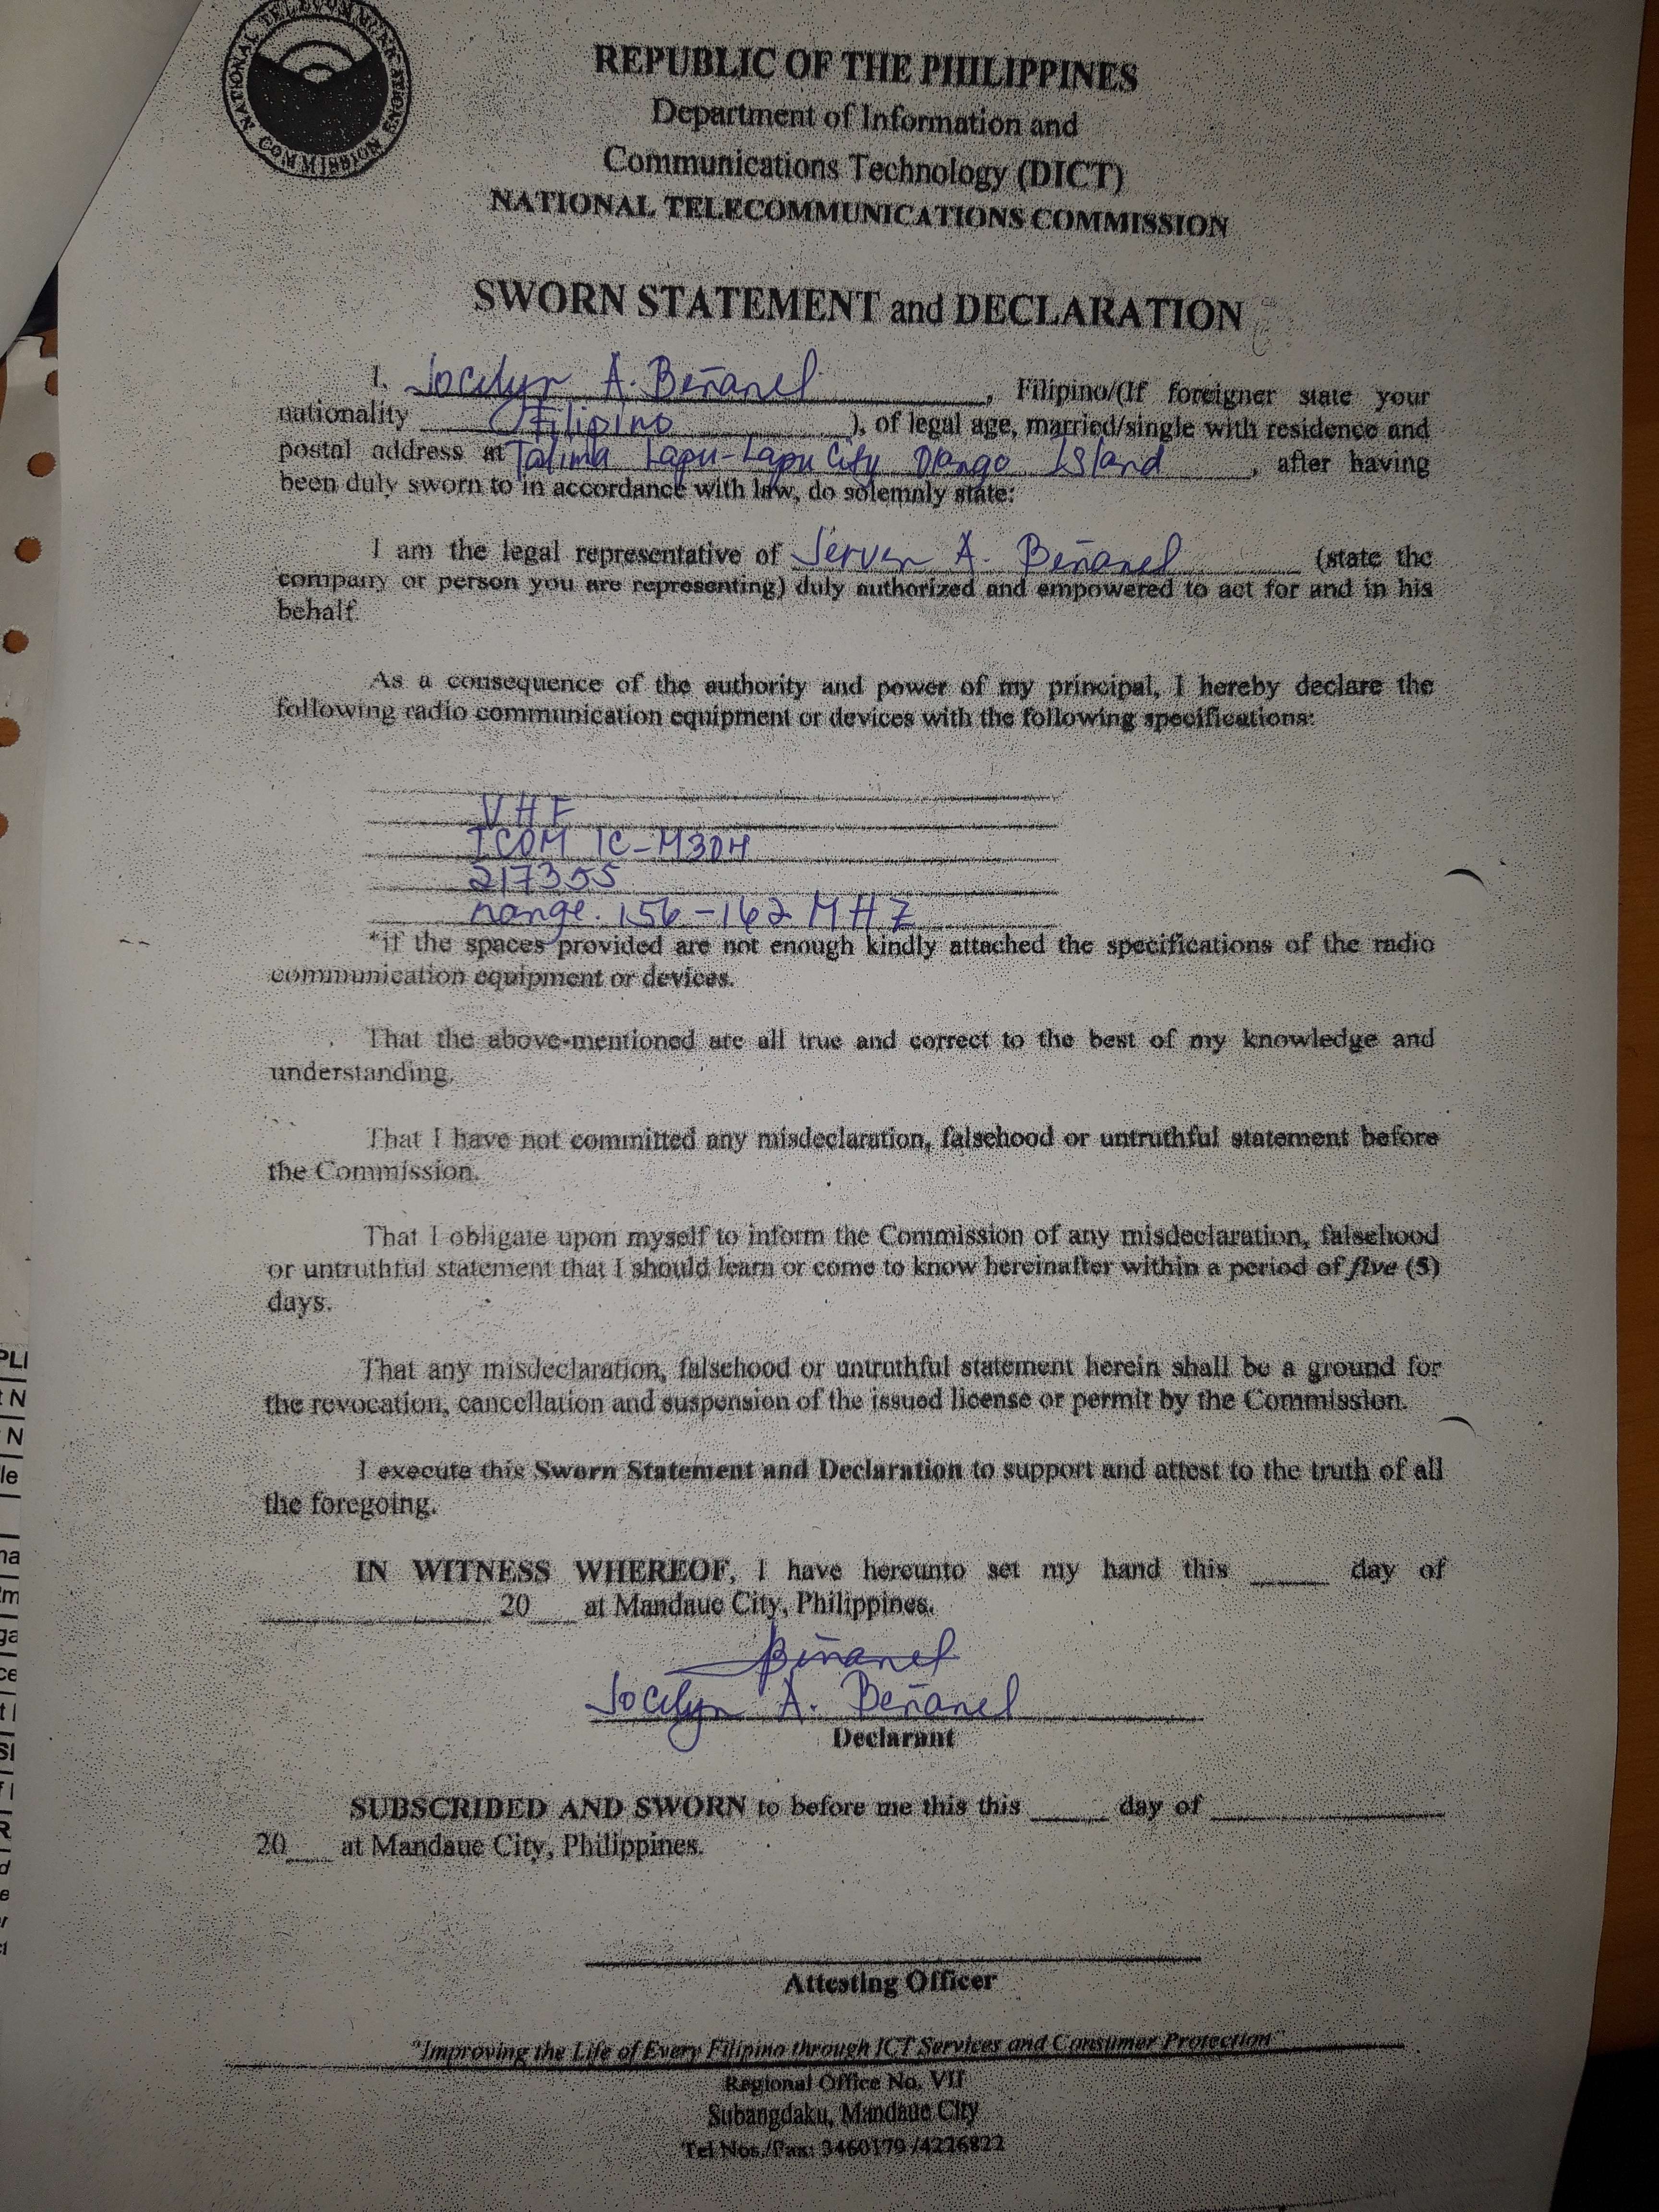 NATIONAL TELECOMMUNICATIONS COMMISSION
REPUBLIC OF THE PHILIPPINES
Department of Information and
Communications Technology (DICT)
NATIONAL TELECOMMUNICATIONS COMMISSION
SWORN STATEMENT and DECLARATION
I, Jocelyn A. Beñanel, Filipino/(If foreigner state your
nationality Filipino), of legal age, married/single with residence and
postal address at Talima Lapu-Lapu City Olango Island, after having
been duly sworn to in accordance with law, do solemnly state:
I am the legal representative of Jerven A. Beñanel (state the
company or person you are representing) duly authorized and empowered to act for and in his
behalf.
As a consequence of the authority and power of my principal, I hereby declare the
following radio communication equipment or devices with the following specifications:
VHF
ICOM IC-M304
217355
range: 156-162 MHZ
*if the spaces provided are not enough kindly attached the specifications of the radio
communication equipment or devices.
That the above-mentioned are all true and correct to the best of my knowledge and
understanding.
That I have not committed any misdeclaration, falsehood or untruthful statement before
the Commission.
That I obligate upon myself to inform the Commission of any misdeclaration, falsehood
or untruthful statement that I should learn or come to know hereinafter within a period of five (5)
days.
That any misdeclaration, falsehood or untruthful statement herein shall be a ground for
the revocation, cancellation and suspension of the issued license or permit by the Commission.
I execute this Sworn Statement and Declaration to support and attest to the truth of all
the foregoing.
IN WITNESS WHEREOF, I have hereunto set my hand this ____ day of
____ 20__ at Mandaue City, Philippines.
Beñanel
Jocelyn A. Beñanel
Declarant
SUBSCRIBED AND SWORN to before me this this ____ day of ____
20__ at Mandaue City, Philippines.
Attesting Officer
"Improving the Life of Every Filipino through ICT Services and Consumer Protection"
Regional Office No. VII
Subangdaku, Mandaue City
Tel Nos./Fax: 3460179 /4226822